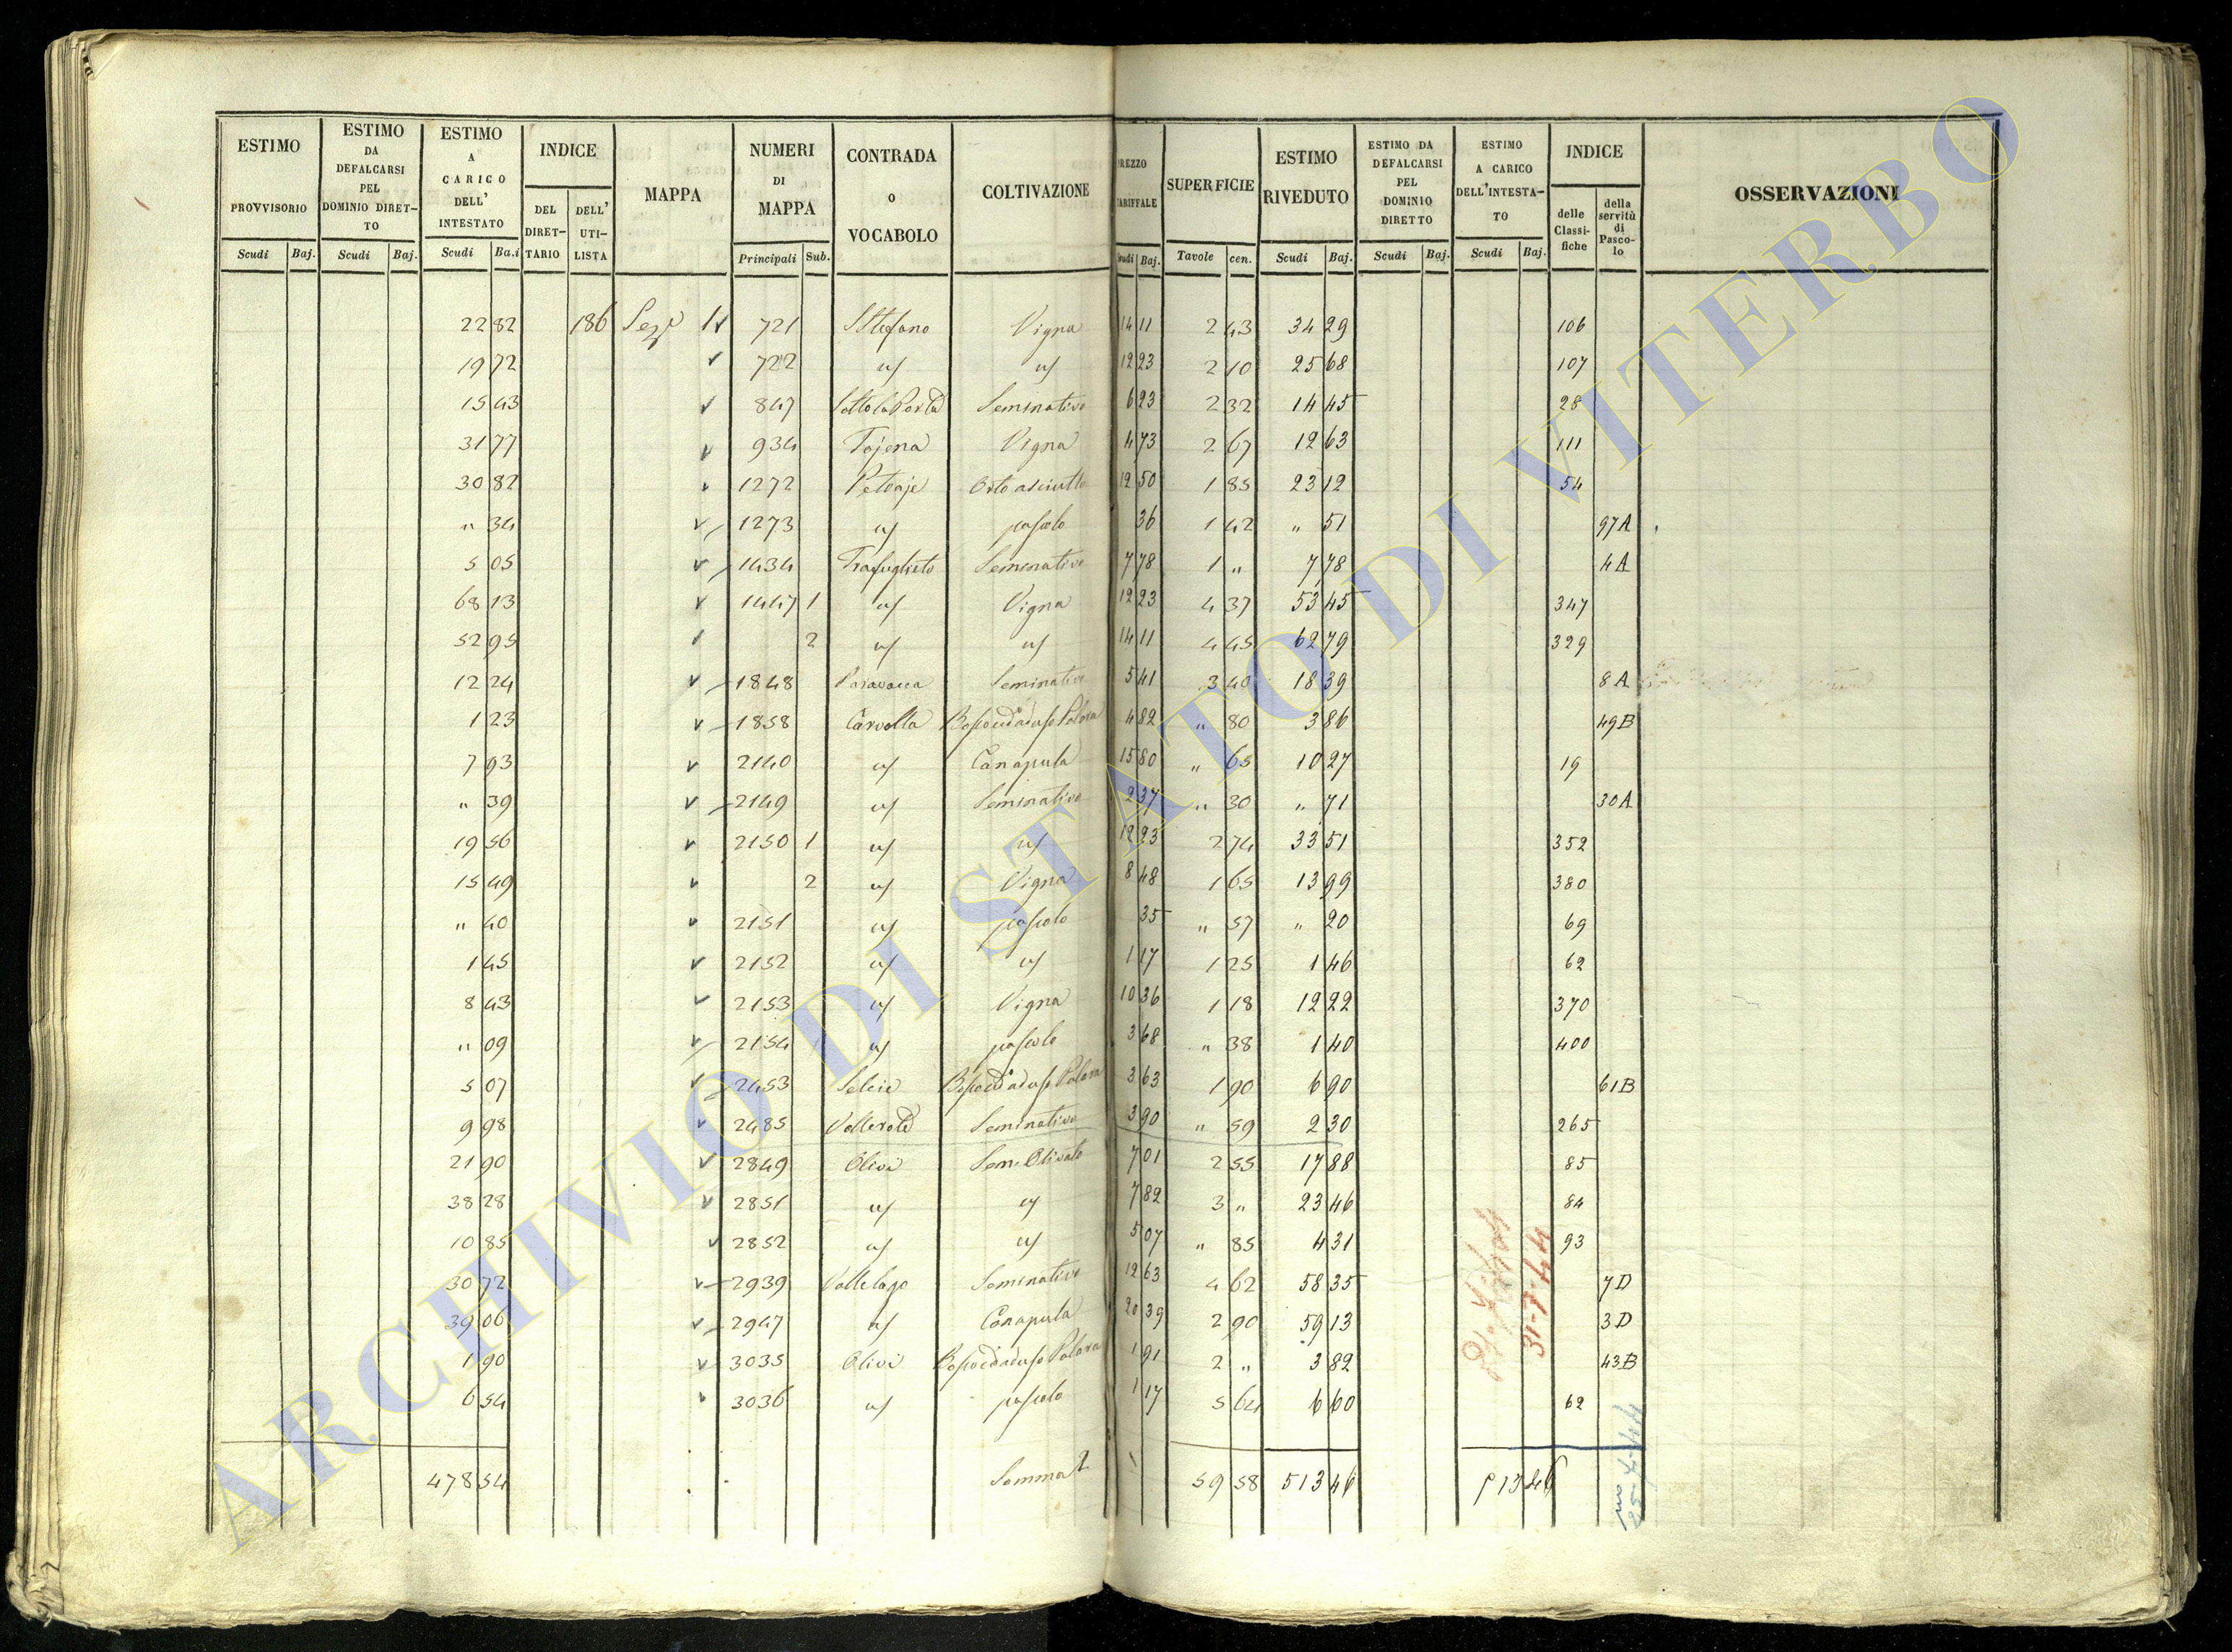 ESTIMO PROVVISORIO Scudi Baj.
ESTIMO DA DEFALCARSI PEL DOMINIO DIRET-TO Scudi Baj.
ESTIMO A CARICO DELL' INTESTATO Scudi Ba.i
INDICE DEL DIRET-TARIO DELL' UTI-LISTA
MAPPA
NUMERI DI MAPPA Principali Sub.
CONTRADA O VOCABOLO
COLTIVAZIONE
REZZO TARIFFALE Scudi Baj.
SUPERFICIE Tavole cen.
ESTIMO RIVEDUTO Scudi Baj.
ESTIMO DA DEFALCARSI PEL DOMINIO DIRETTO Scudi Baj.
ESTIMO A CARICO DELL'INTESTA-TO Scudi Baj.
INDICE delle Classi-fiche della servitù di Pasco-lo
OSSERVAZIONI
22 82 186 Sez. 1 721 S Stefano Vigna 14 11 2 43 34 29 106
19 72 722 " " 12 23 2 10 25 68 107
15 43 847 Sotto la Porta Seminativo 6 23 2 32 14 45 28
31 77 934 Tojena Vigna 4 73 2 67 12 63 111
30 82 1272 Petraje Orto asciutto 12 50 1 85 23 12 54
" 34 1273 " pascolo 36 1 42 " 51 97A
5 05 1434 Trafuglieto Seminativo 7 78 1 " 7 78 4A
68 13 1447 1 " Vigna 12 23 4 37 53 45 347
52 95 2 " " 14 11 4 45 62 79 329
12 24 1848 Paravacca Seminativo 5 41 3 40 18 39 8A
1 23 1858 Carvolla 4 82 " 80 3 86 49B
7 93 2140 " Canapula 15 80 " 65 10 27 19
" 39 2149 " Seminativo 2 37 " 30 " 71 30A
19 56 2150 1 " " 12 23 2 74 33 51 352
15 49 2 " Vigna 8 48 1 65 13 99 380
" 40 2151 " pascolo 35 " 57 " 20 69
1 45 2152 " " 1 17 1 25 1 46 62
8 43 2153 " Vigna 10 36 1 18 12 22 370
" 09 2154 " pascolo 3 68 " 38 1 40 400
5 07 2453 Selcie 3 63 1 90 6 90 61B
9 98 2485 Vallerota Seminativo 3 90 " 59 2 30 265
21 90 2849 Olivi Sem. Olivato 7 01 2 55 17 88 85
38 28 2851 " " 7 82 3 " 23 46 84
10 85 2852 " " 5 07 " 85 4 31 93
30 72 2939 Vallelago Seminativo 12 63 4 62 58 35 7D
39 06 2947 " Canapula 20 39 2 90 59 13 3D
1 90 3035 Olivi 1 91 2 " 3 82 43B
6 54 3036 " pascolo 1 17 5 64 6 60 62
478 54 Somma 59 58 513 46 513 46
31-7-44
25-7-44
ARCHIVIO DI STATO DI VITERBO